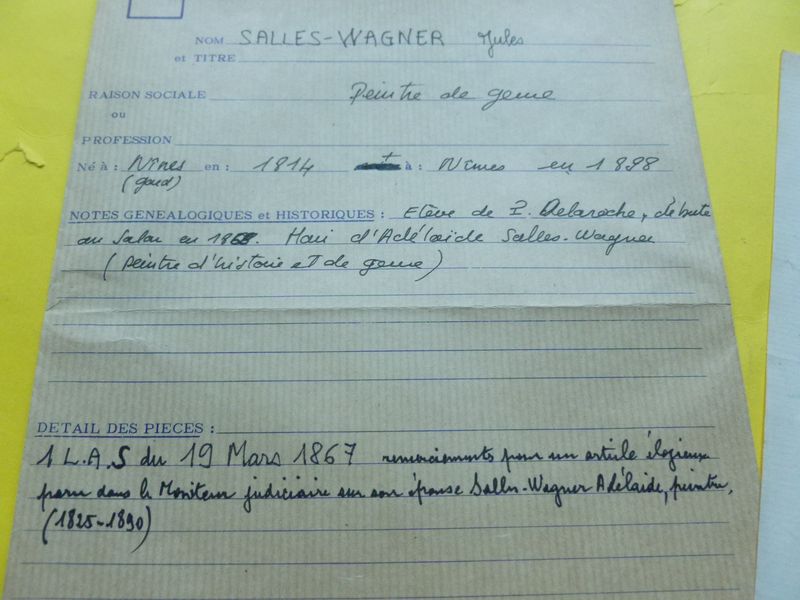 NOM SALLES-WAGNER Jules
et TITRE
RAISON SOCIALE Peintre de genre
ou
PROFESSION
Né à : Nîmes en : 1814 + à : Nîmes en 1898
(gard)
NOTES GENEALOGIQUES et HISTORIQUES : Elève de P. Delaroche, débute
au Salon en Mari d'Adélaïde Salles-Wagner
(peintre d'histoire et de genre)
DETAIL DES PIECES :
1 L.A.S du 19 Mars 1867 remerciements pour un article élogieux
paru dans le Moniteur judiciaire sur son épouse Salles-Wagner Adélaide, peintre,
(1825-1890)